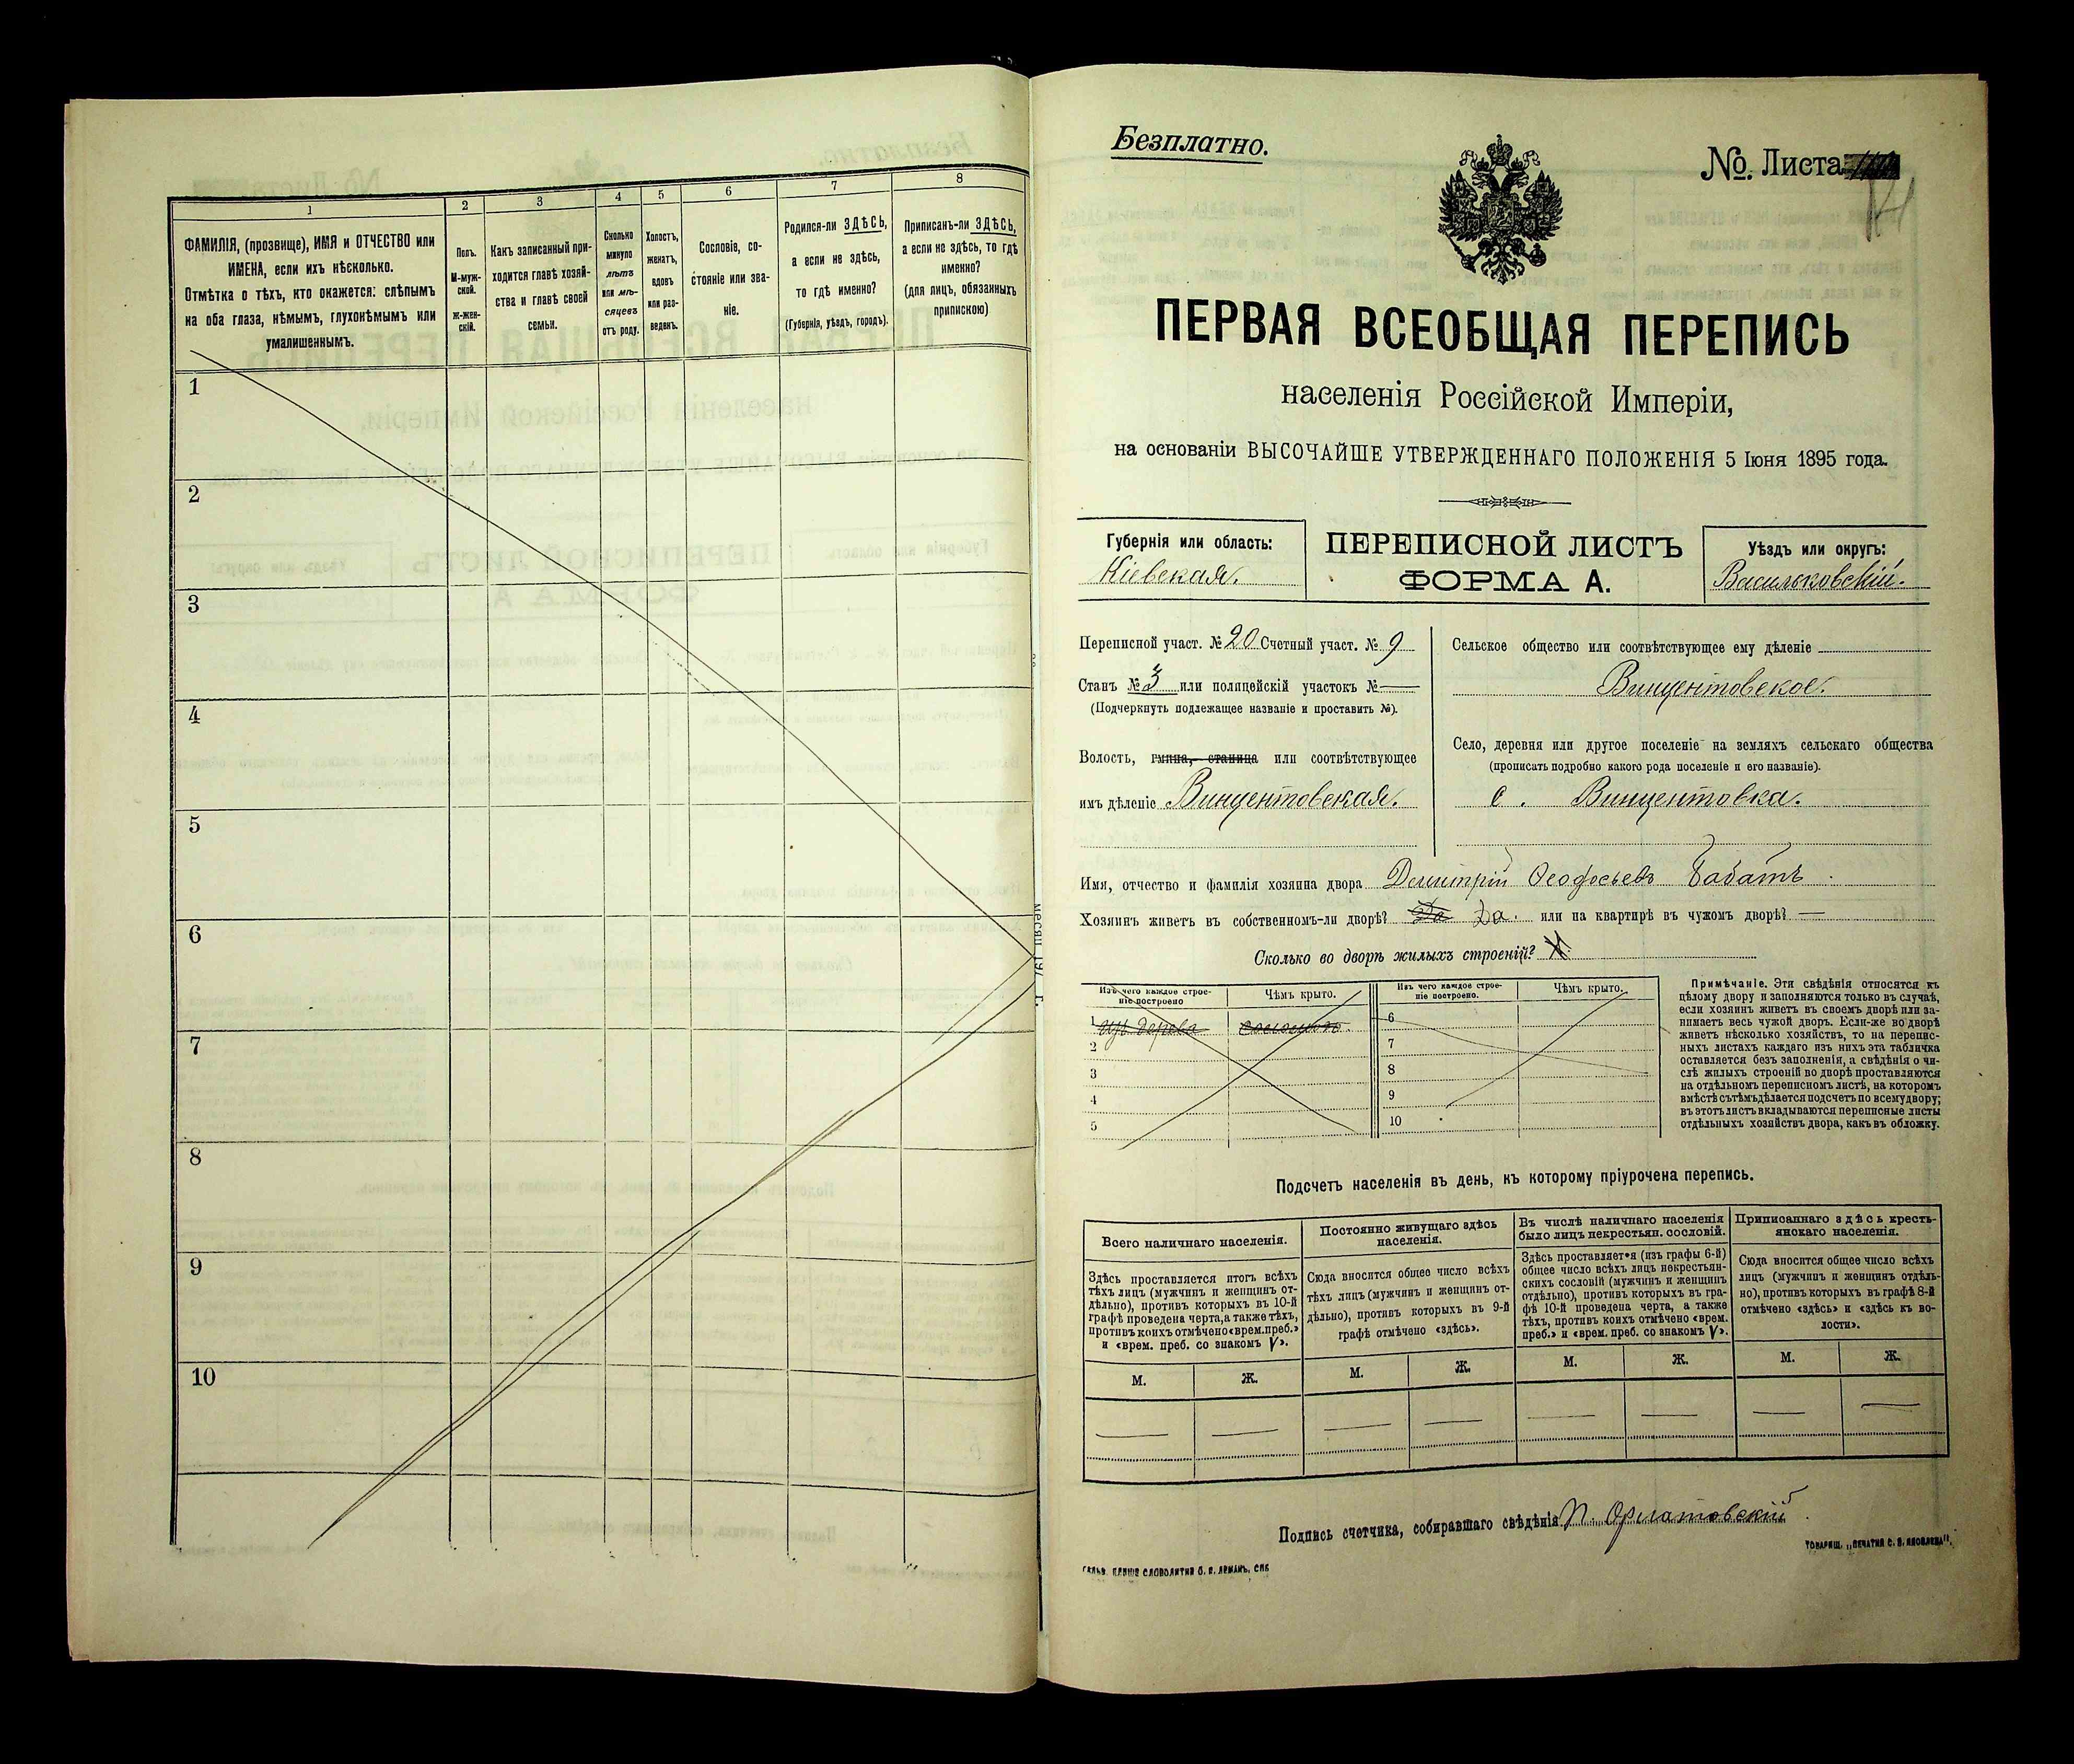 1 2 3 4 5 6 7 8
ФАМИЛІЯ, (прозвище), ИМЯ и ОТЧЕСТВО или
ИМЕНА, если ихъ нѣсколько.
Отмѣтка о тѣхъ, кто окажется: слѣпымъ
на оба глаза, нѣмымъ, глухонѣмымъ или
умалишеннымъ.
Полъ.
М-муж-
ской.
Ж-жен-
скій.
Какъ записанный при-
ходится главѣ хозяй-
ства и главѣ своей
семьи.
Сколько
минуло
лѣтъ
или мѣ-
сяцевъ
отъ роду.
Холостъ,
женатъ,
вдовъ
или раз-
веденъ.
Сословіе, со-
стояніе или зва-
ніе.
Родился-ли ЗДѢСЬ,
а если не здѣсь,
то гдѣ именно?
(Губернія, уѣздъ, городъ).
Приписанъ-ли ЗДѢСЬ,
а если не здѣсь, то гдѣ
именно?
(для лицъ, обязанныхъ
припискою)
1
2
3
4
5
6
7
8
9
10
Безплатно.
№. Листа
14
ПЕРВАЯ ВСЕОБЩАЯ ПЕРЕПИСЬ
населенія Россійской Имперіи,
на основаніи ВЫСОЧАЙШЕ УТВЕРЖДЕННАГО ПОЛОЖЕНІЯ 5 Іюня 1895 года.
Губернія или область:
Кіевская.
ПЕРЕПИСНОЙ ЛИСТЪ
ФОРМА А.
Уѣздъ или округъ:
Васильковскій.
Переписной участ. № 20 Счетный участ. № 9
Станъ № 3 или полицейскій участокъ № —
(Подчеркнуть подлежащее названіе и проставить №).
Волость, гмина, станица или соотвѣтствующее
имъ дѣленіе Винцентовская.
Сельское общество или соотвѣтствующее ему дѣленіе
Винцентовское.
Село, деревня или другое поселеніе на земляхъ сельскаго общества
(прописать подробно какого рода поселеніе и его названіе).
с. Винцентовка.
Имя, отчество и фамилія хозяина двора Димитрій Ѳеодосьевъ Бабатъ.
Хозяинъ живетъ въ собственномъ-ли дворѣ? Да Да. или на квартирѣ въ чужомъ дворѣ? —
Сколько во дворѣ жилыхъ строеній?
Изъ чего каждое строе-
ніе построено
Чѣмъ крыто.
Изъ чего каждое строе-
ніе построено.
Чѣмъ крыто.
1 изъ дерева соломою 6
2 7
3 8
4 9
5 10
Примѣчаніе. Эти свѣдѣнія относятся къ
цѣлому двору и заполняются только въ случаѣ,
если хозяинъ живетъ въ своемъ дворѣ или за-
нимаетъ весь чужой дворъ. Если-же во дворѣ
живетъ нѣсколько хозяйствъ, то на перепис-
ныхъ листахъ каждаго изъ нихъ эта табличка
оставляется безъ заполненія, а свѣдѣнія о чи-
слѣ жилыхъ строеній во дворѣ проставляются
на отдѣльномъ переписномъ листѣ, на которомъ
вмѣстѣ съ тѣмъ дѣлается подсчетъ по всему двору;
въ этотъ листъ вкладываются переписные листы
отдѣльныхъ хозяйствъ двора, какъ въ обложку.
Подсчетъ населенія въ день, къ которому пріурочена перепись.
Всего наличнаго населенія.
Здѣсь проставляется итогъ всѣхъ
тѣхъ лицъ (мужчинъ и женщинъ от-
дѣльно), противъ которыхъ въ 10-й
графѣ проведена черта, а также тѣхъ,
противъ коихъ отмѣчено «врем. преб.»
и «врем. преб. со знакомъ V».
М. Ж.
Постоянно живущаго здѣсь
населенія.
Сюда вносится общее число всѣхъ
тѣхъ лицъ (мужчинъ и женщинъ от-
дѣльно), противъ которыхъ въ 9-й
графѣ отмѣчено «здѣсь».
М. Ж.
Въ числѣ наличнаго населенія
было лицъ некрестьян. сословій.
Здѣсь проставляется (изъ графы 6-й)
общее число всѣхъ лицъ некрестьян-
скихъ сословій (мужчинъ и женщинъ
отдѣльно), противъ которыхъ въ гра-
фѣ 10-й проведена черта, а также
тѣхъ, противъ коихъ отмѣчено «врем.
преб.» и «врем. преб. со знакомъ V».
М. Ж.
Приписаннаго здѣсь кресть-
янскаго населенія.
Сюда вносится общее число всѣхъ
лицъ (мужчинъ и женщинъ отдѣль-
но), противъ которыхъ въ графѣ 8-й
отмѣчено «здѣсь» и «здѣсь къ во-
лости».
М. Ж.
— — — — — — — —
Подпись счетчика, собиравшаго свѣдѣнія П. Орлатовскій
СЛОВОЛИТНИ О. И. ЛЕМАНЪ, СПБ
ТОВАРИЩ. „ПЕЧАТНЯ С. П. ЯКОВЛЕВА".